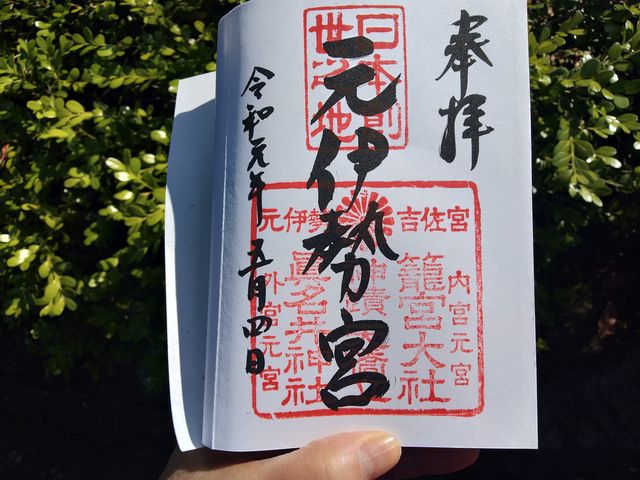 奉拝
日本創
世之地
元伊勢宮
吉佐宮
元伊勢
内宮元宮
籠宮大社
眞名井神社
外宮元宮
令和元年 五月四日